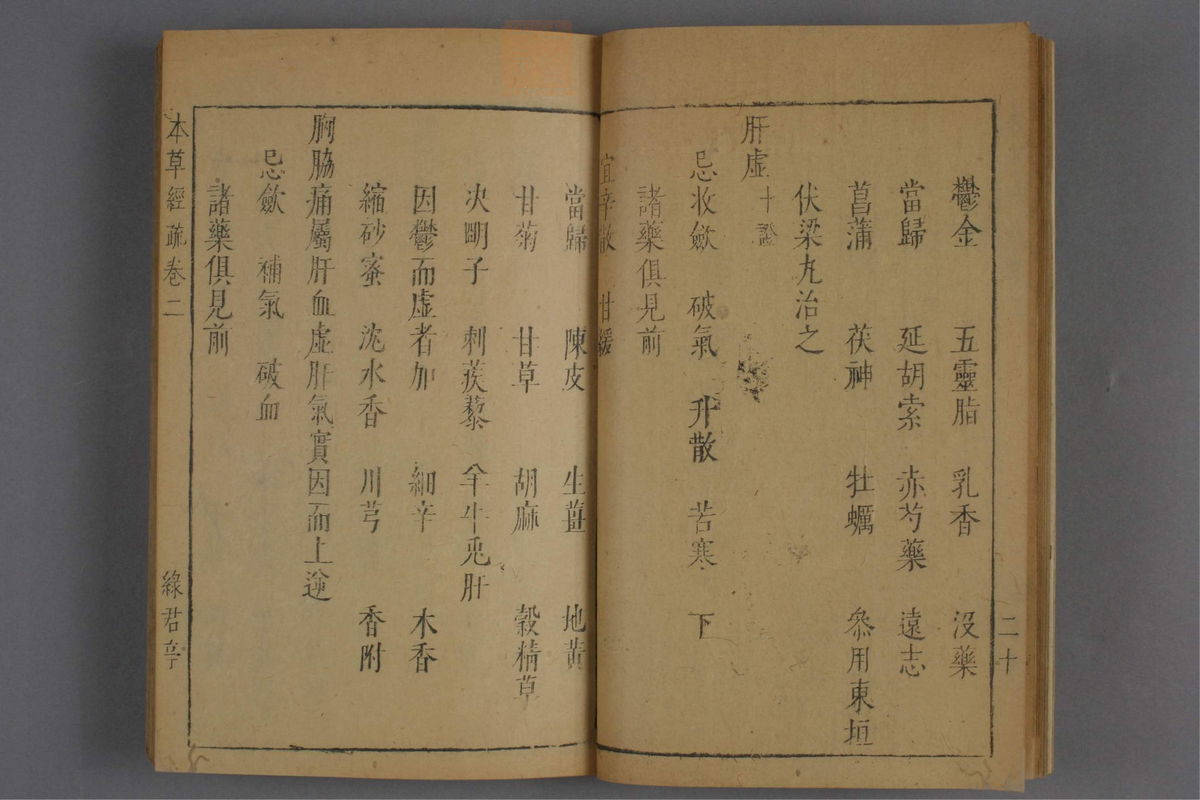 二十
鬱金 五靈脂 乳香 沒藥
當歸 延胡索 赤芍藥 遠志
菖蒲 茯神 牡蠣 叅用東垣
伏梁丸治之
肝虛十證
忌收斂 破氣 升散 苦寒 下
諸藥俱見前
宜辛散 甘緩
當歸 陳皮 生薑 地黃
甘菊 甘草 胡麻 穀精草
决明子 刺蒺藜 羊牛兎肝
因鬱而虛者加 細辛 木香
縮砂蜜 沈水香 川芎 香附
胸脇痛屬肝血虛肝氣實因而上逆
忌斂 補氣 破血
諸藥俱見前
本草經疏卷二 綠君亭